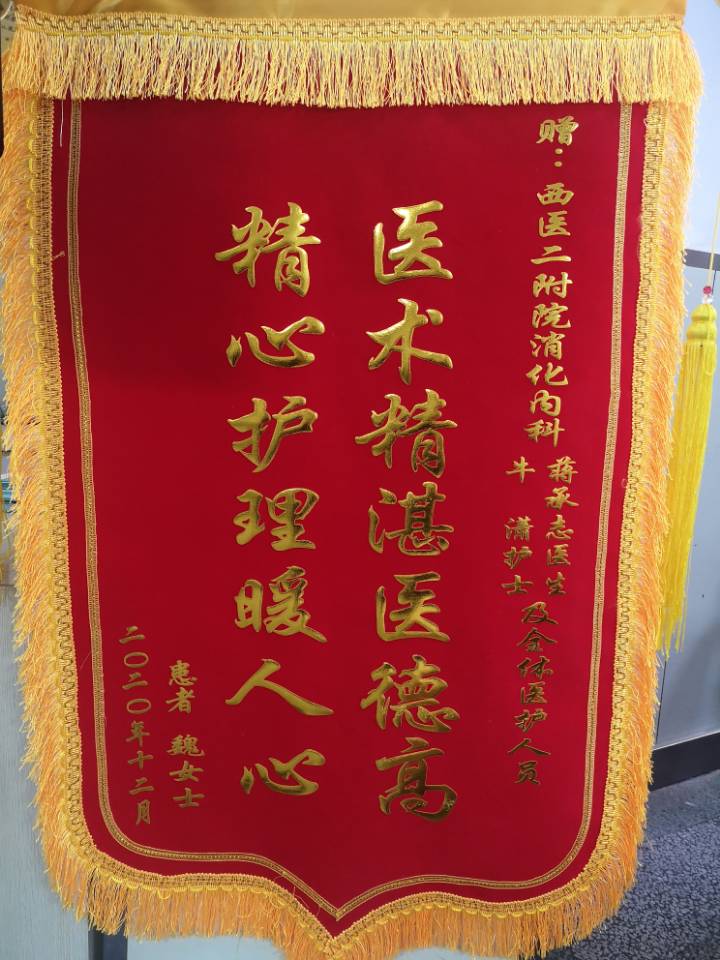 赠：西医二附院消化内科
蒋承志医生
牛 潇护士
及全体医护人员
医术精湛医德高
精心护理暖人心
患者 魏女士
二〇二〇年十二月